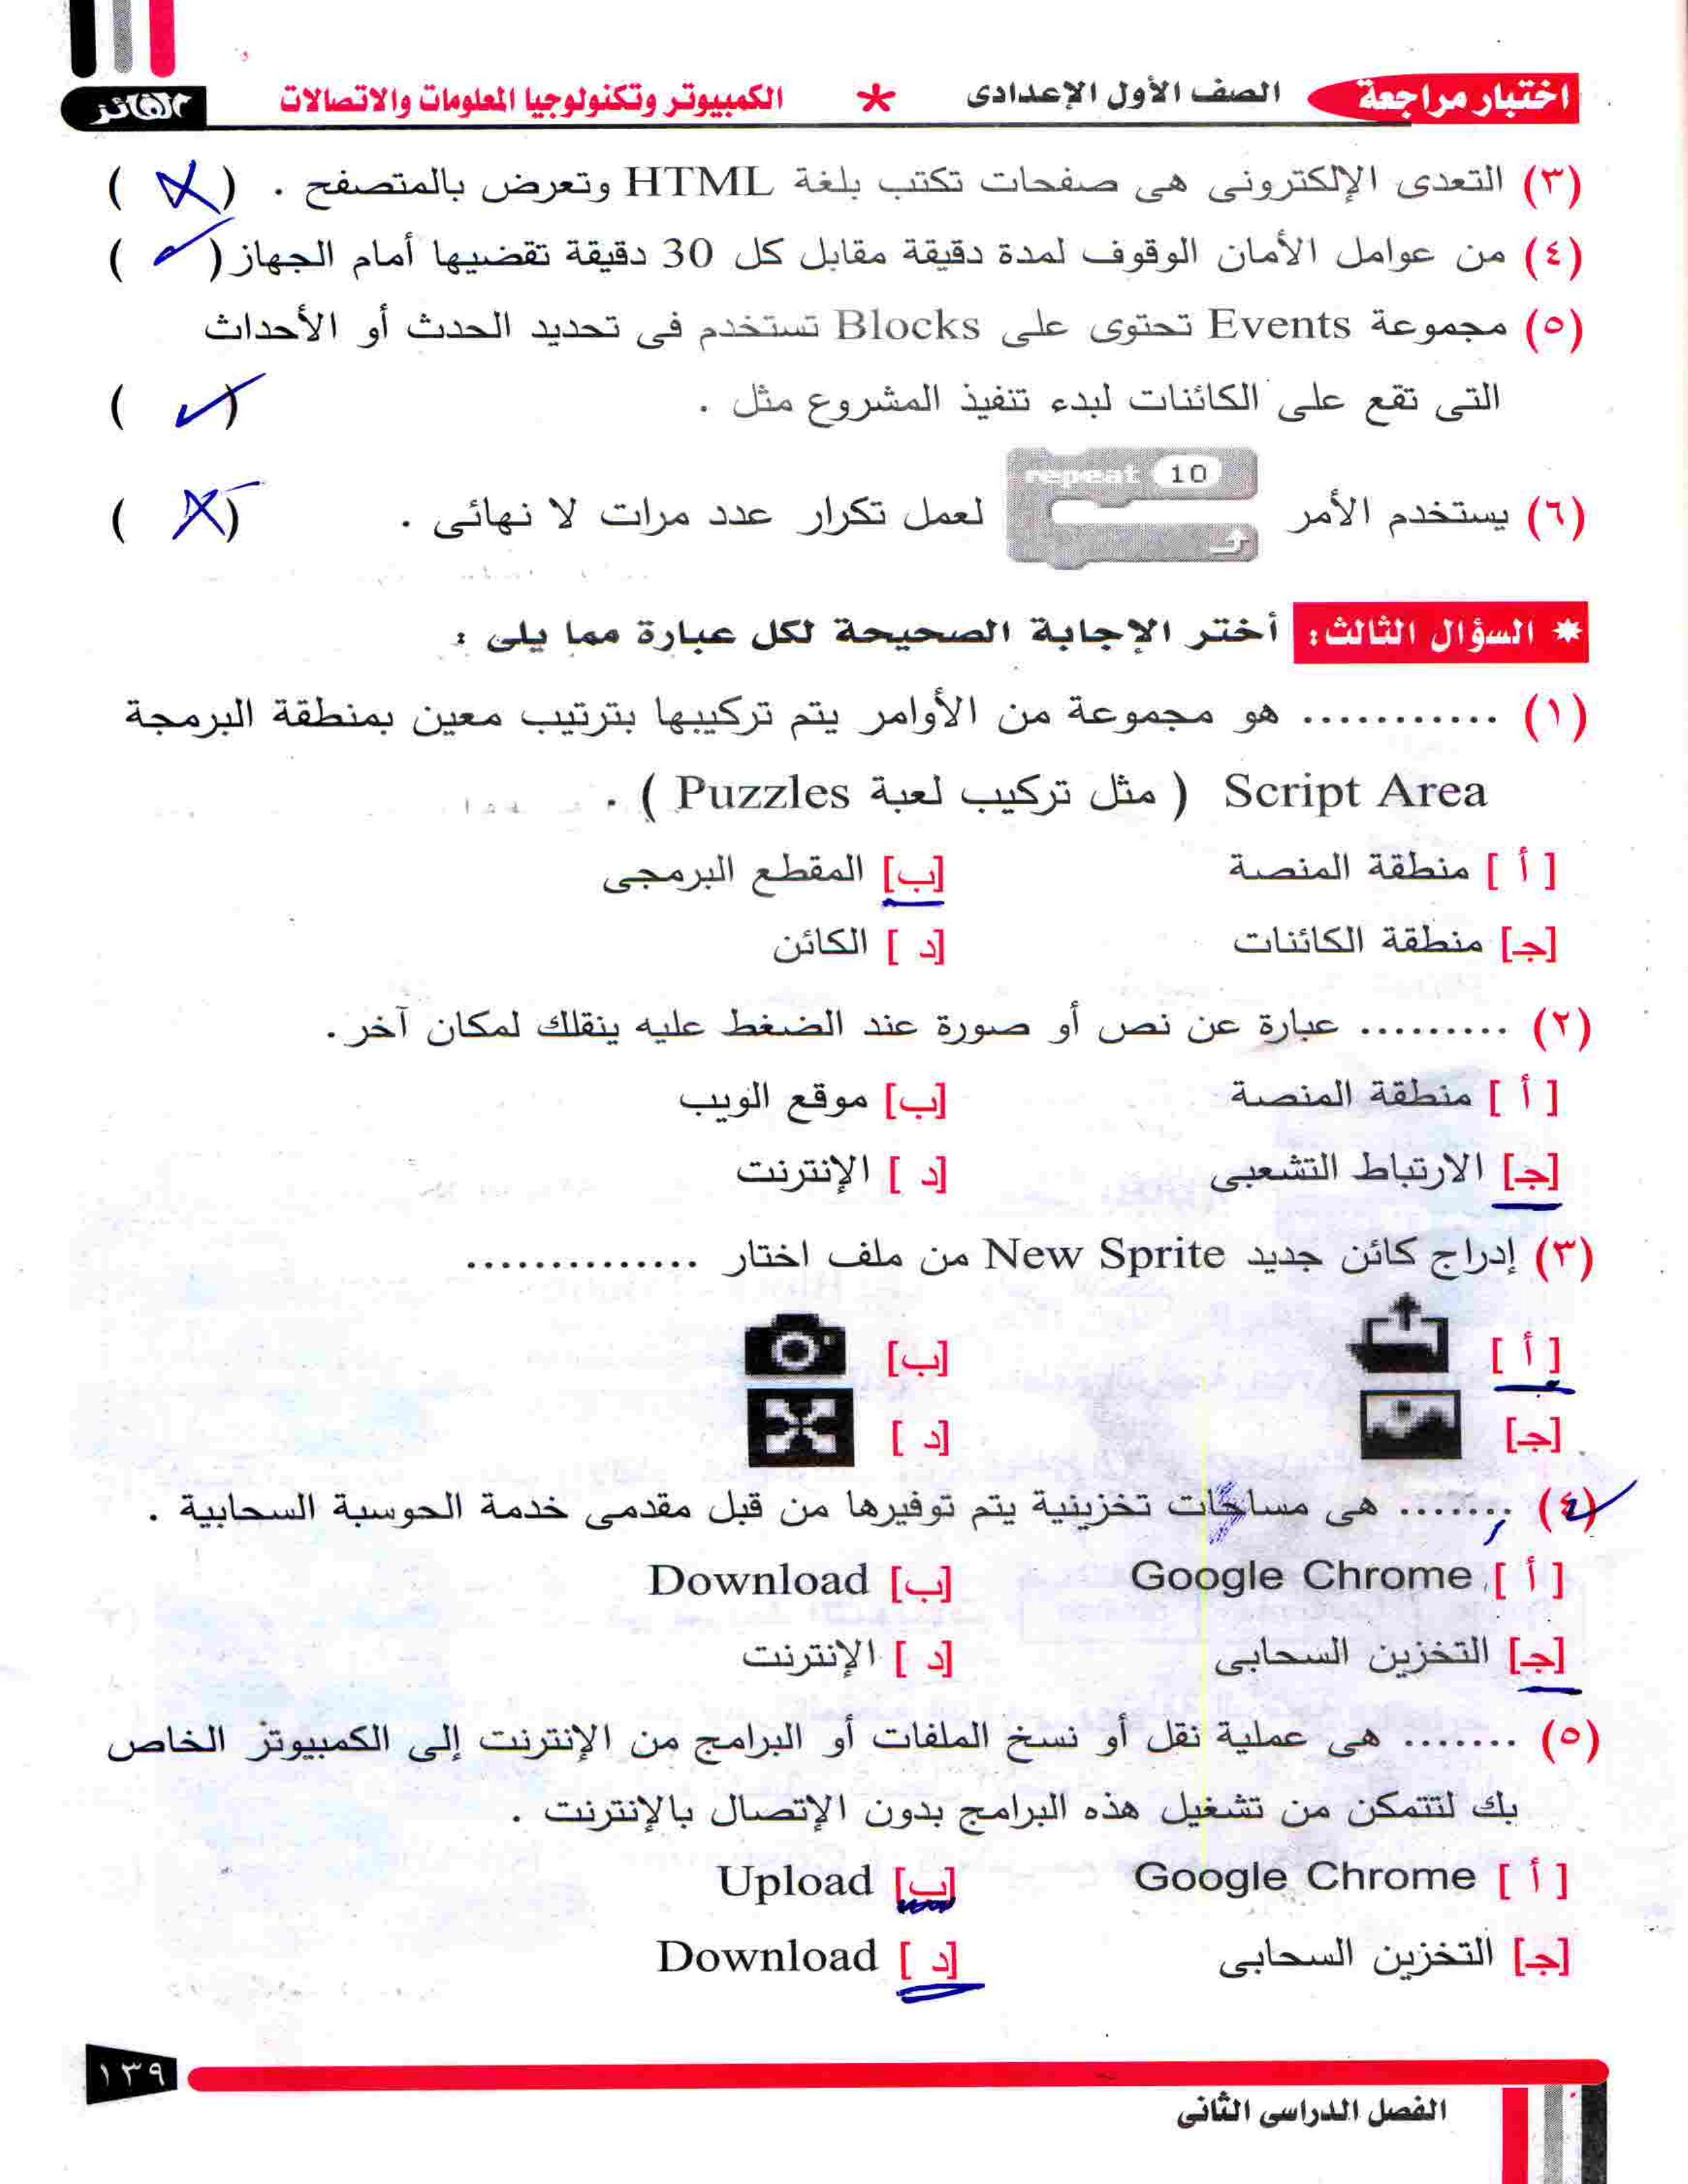 اختبار مراجعة الصف الأول الإعدادى * الكمبيوتر وتكنولوجيا المعلومات والاتصالات الفائز
(٣) التعدى الإلكترونى هى صفحات تكتب بلغة HTML وتعرض بالمتصفح . ( X )
(٤) من عوامل الأمان الوقوف لمدة دقيقة مقابل كل 30 دقيقة تقضيها أمام الجهاز ( ✓ )
(٥) مجموعة Events تحتوى على Blocks تستخدم فى تحديد الحدث أو الأحداث
التى تقع على الكائنات لبدء تنفيذ المشروع مثل . ( ✓ )
repeat 10
(٦) يستخدم الأمر لعمل تكرار عدد مرات لا نهائى . ( X )
* السؤال الثالث: أختر الإجابة الصحيحة لكل عبارة مما يلى :
(١) ........... هو مجموعة من الأوامر يتم تركيبها بترتيب معين بمنطقة البرمجة
Script Area ( مثل تركيب لعبة Puzzles ) .
[ أ ] منطقة المنصة [ب] المقطع البرمجى
[جـ] منطقة الكائنات [ د ] الكائن
(٢) ......... عبارة عن نص أو صورة عند الضغط عليه ينقلك لمكان آخر .
[ أ ] منطقة المنصة [ب] موقع الويب
[جـ] الارتباط التشعبى [ د ] الإنترنت
(٣) إدراج كائن جديد New Sprite من ملف اختار ..............
[ أ ] [ب]
[جـ] [ د ]
(٤) ....... هى مساحات تخزينية يتم توفيرها من قبل مقدمى خدمة الحوسبة السحابية .
[ أ ] Google Chrome [ب] Download
[جـ] التخزين السحابى [ د ] الإنترنت
(٥) ....... هى عملية نقل أو نسخ الملفات أو البرامج من الإنترنت إلى الكمبيوتر الخاص
بك لتتمكن من تشغيل هذه البرامج بدون الإتصال بالإنترنت .
[ أ ] Google Chrome [ب] Upload
[جـ] التخزين السحابى [ د ] Download
١٣٩
الفصل الدراسى الثانى